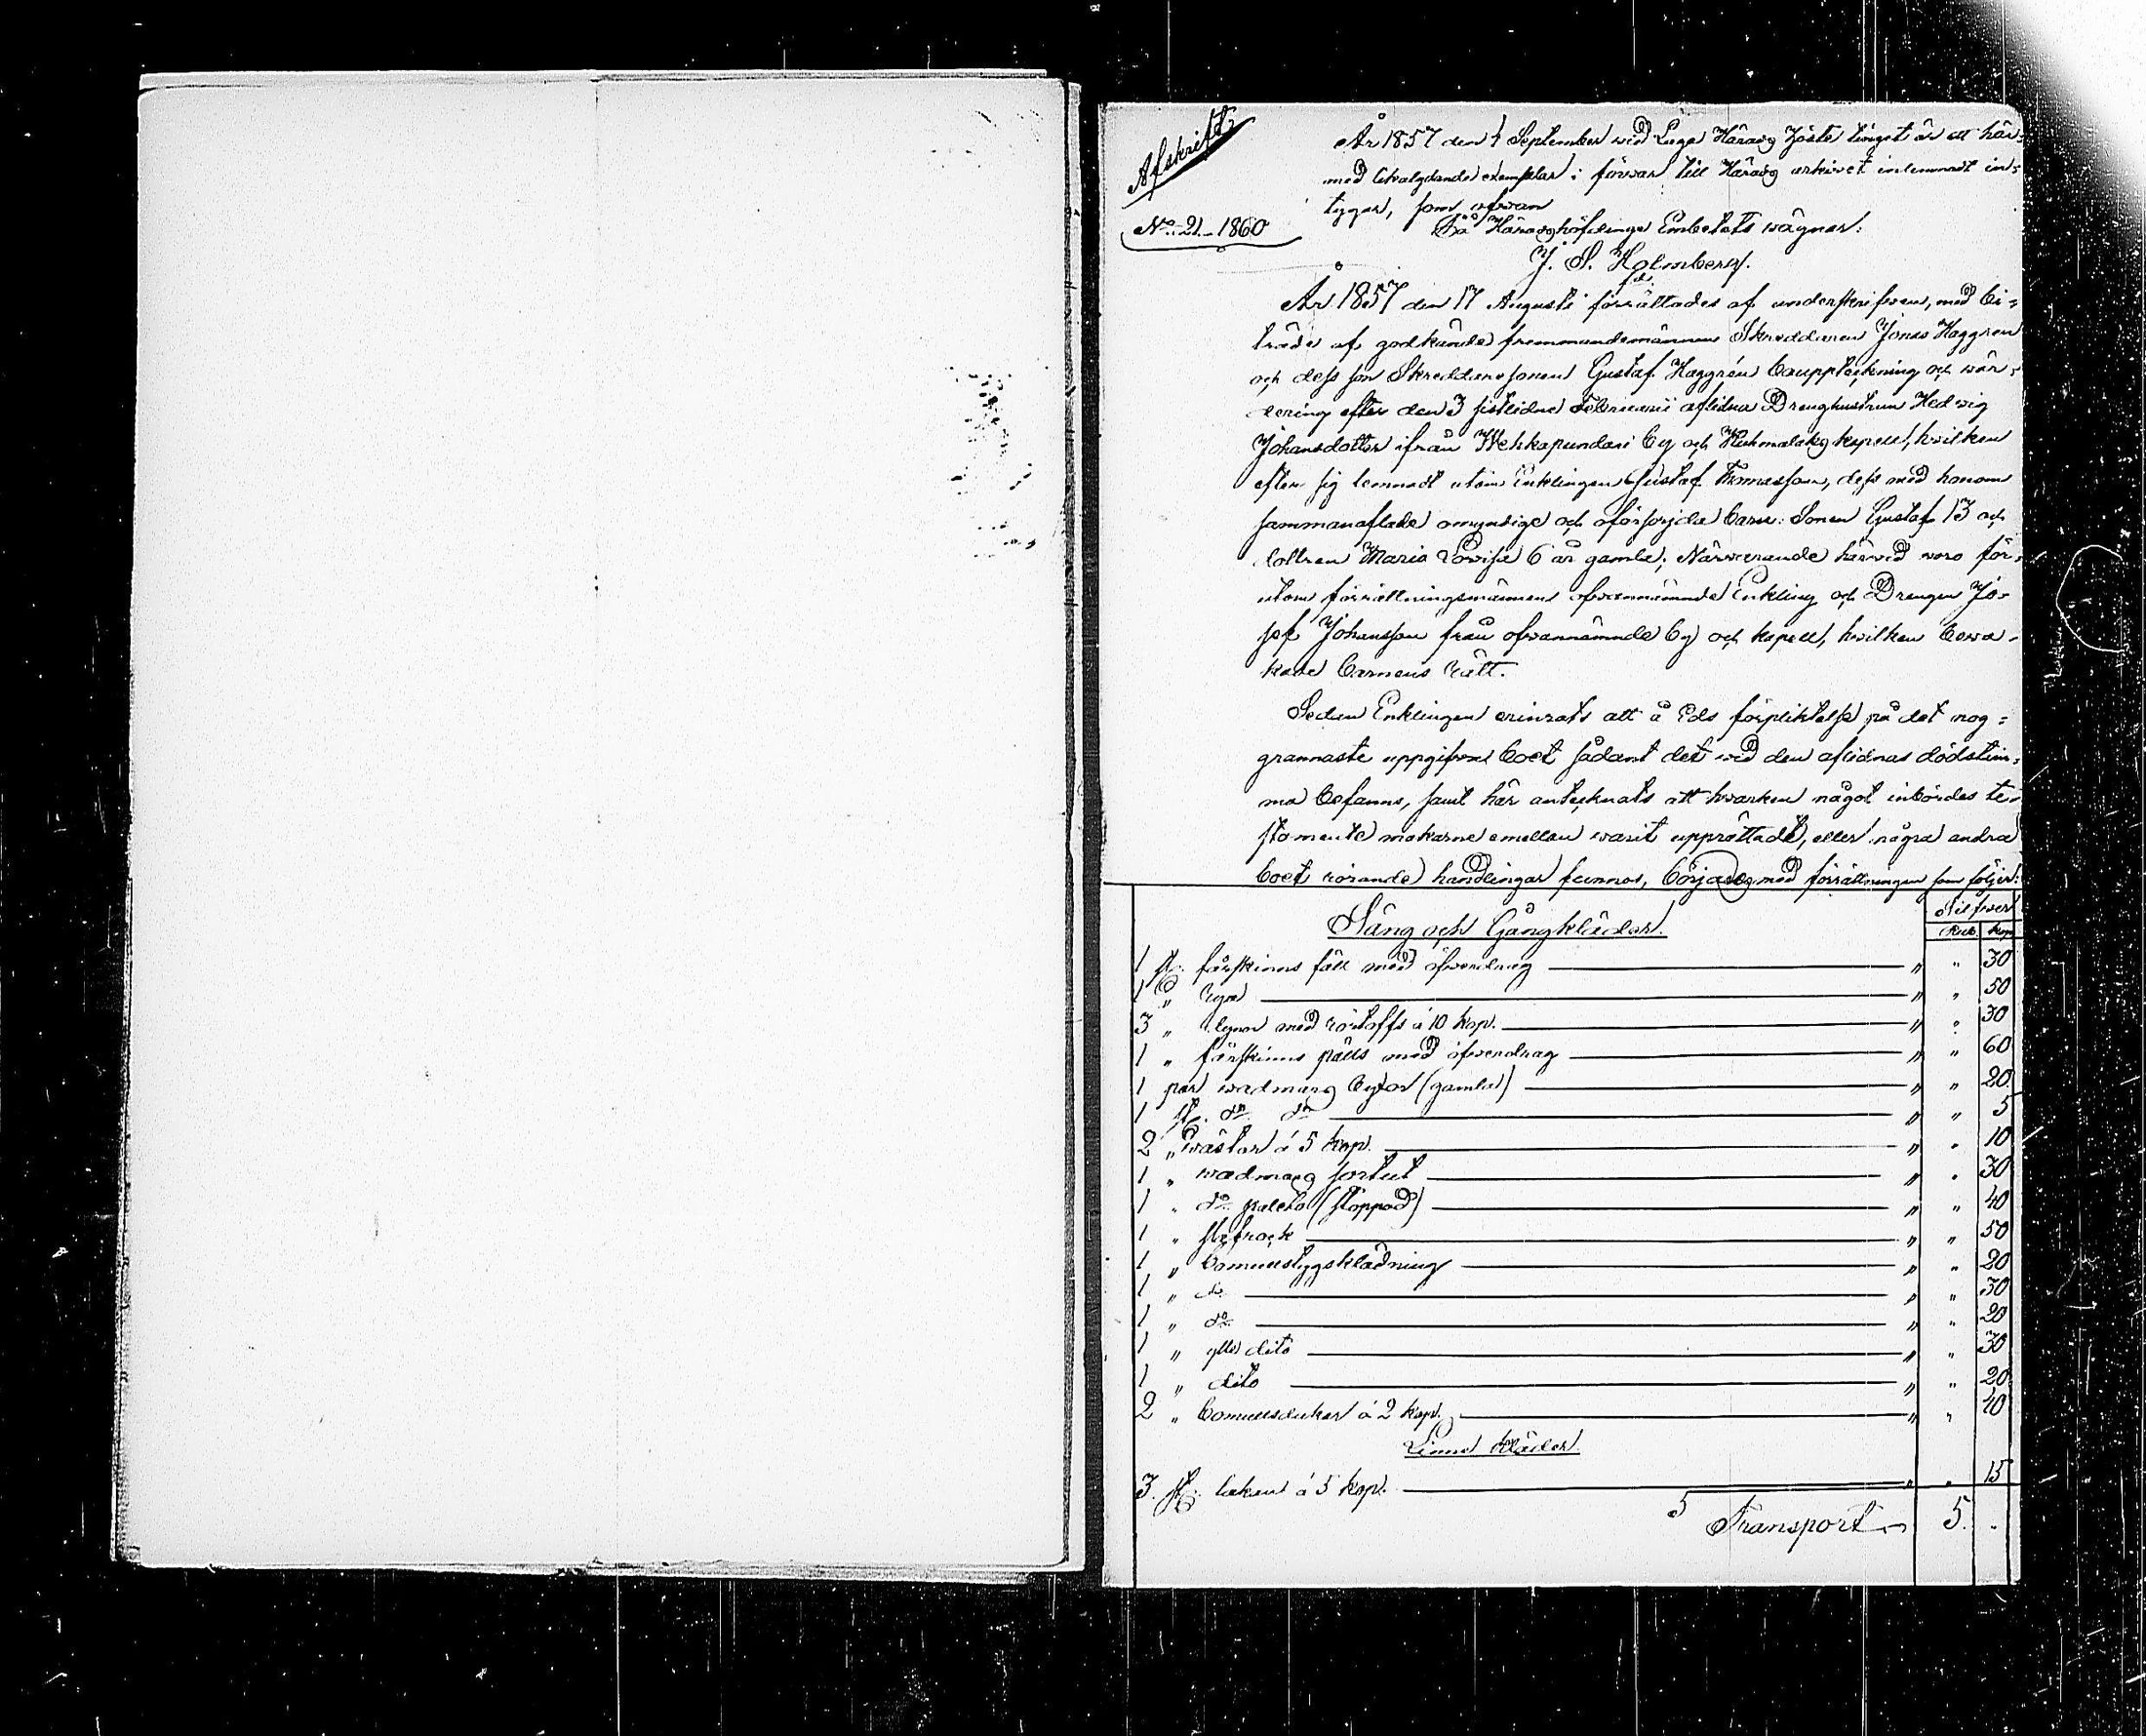 Afskrift
No. 21. 1860
År 1857 den 4 September wid Laga Härads Höste tinget är ett här-
med likalydande exemplar i förwar till Härads arkivet inlemnadt in-
tygar, som ofwan
På Häradshöfdinge Embetets wägnar:
J. S. Holmberg.
År 1857 den 17 Augusti förrättades af underskrifwen, med bi-
träde af godkände fremmandemännen Skreddaren Jonas Haggren
och dess son Skreddaresonen Gustaf Haggrén bouppteckning och wär-
dering efter den 3 sistlidne Februarii aflidna Drenghustrun Hedvig
Johansdotter ifrån by och kapell, hvilken
efter sig lemnadt utom Enklingen Gustaf Thomasson, dess med honom
sammanaflade omyndige och oförsörjda barn: Sonen Gustaf 13 och
dottren Maria Lovisa 6 år gamla; Närwarande härwid woro för-
utom förrättningsmännen ofwannämnde Enkling och Drengen Jo-
sef Johansson från ofwannämnde by och kapell, hvilken bewa-
kade barnens rätt.
Sedan Enklingen erinrats att å Eds förpliktelse på det nog-
grannaste uppgifwa boet sådant det wid den aflidnas dödstim-
ma befanns, samt här antecknats att hwarken något inbördes te-
stamente makarne emellan warit upprättadt, eller några andra
boet rörande handlingar funnos, börjades med förrättningen som följer:
Silfwer
Säng och Gångkläder. Rub. kop
1 st. fårskinns fäll med öfwerdrag " " 30
1 " rya " " 50
3 " dynor med rörtoffs á 10 kop. " " 30
1 " fårskinns päls med öfwerdrag " " 60
1 par wadmans byxor (gamla) " " 20
1 st. do do " " 5
2 " wästar á 5 kop. " " 10
1 " wadmans sortut " " 30
1 " do paleto (stoppad) " " 40
1 " slefrock " " 50
1 " bomullstygsklädning " " 20
1 " do " " 30
1 " do " " 20
1 " ylle dito " " 30
1 " dito " " 20
2 " bomullsdukar á 2 kop. " " 40
Linne kläder.
3 st. lakan á 5 kop. " " 15
5 Transport 5. .